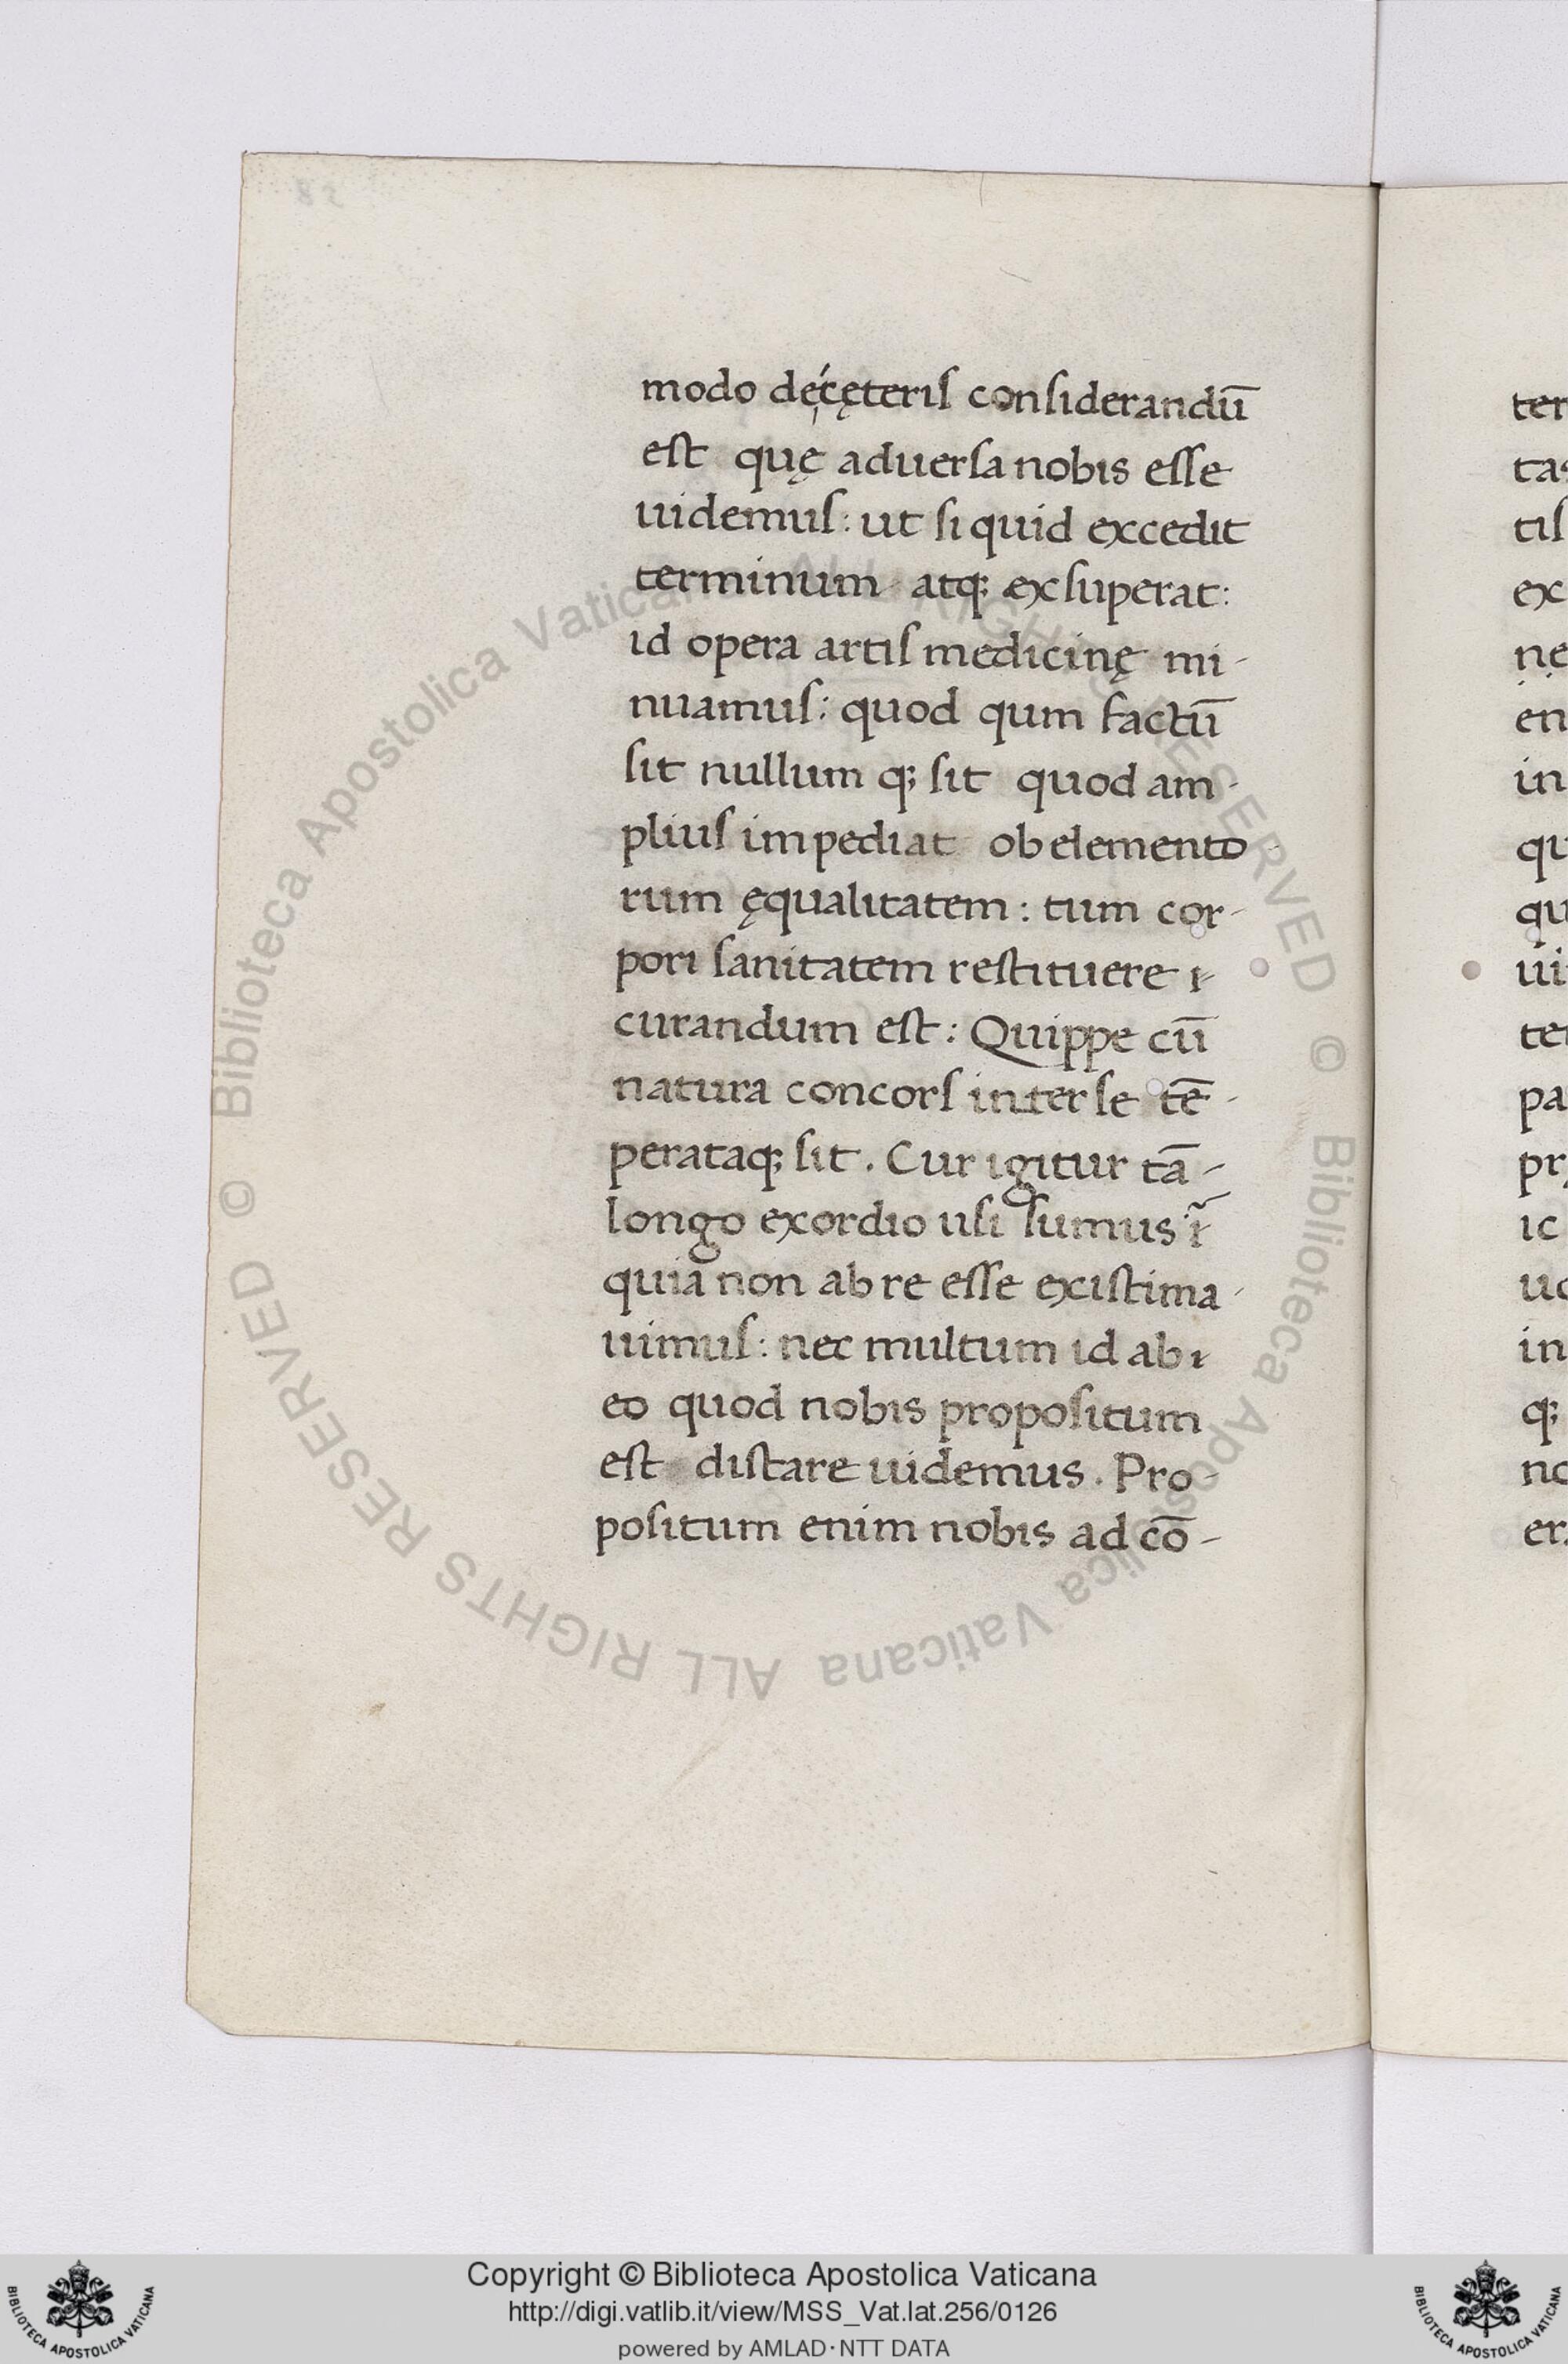 82
modo de cęteris considerandū
est quę aduersa nobis esse
uidemus: ut si quid excedit
terminum atq; exsuperat:
id opera artis medicinę mi-
nuamus: quod qum factū
sit nullum q; sit quod am-
plius impediat ob elemento-
rum ęqualitatem: tum cor-
pori sanitatem restituere
curandum est: Quippe cū
natura concors inter se tē-
perataq; sit. Cur igitur tā-
longo exordio usi sumus
quia non ab re esse existima-
uimus: nec multum id ab
eo quod nobis propositum
est distare uidemus. Pro-
positum enim nobis ad cō-
ter
tas
tis
ex
ne
en
in
qu
qu
ui
ter
pa
ic
in
q;
Biblioteca Apostolica Vaticana ALL RIGHTS RESERVED © Biblioteca Apostolica Vaticana ALL RIGHTS RESERVED ©
Copyright © Biblioteca Apostolica Vaticana
http://digi.vatlib.it/view/MSS_Vat.lat.256/0126
powered by AMLAD·NTT DATA
BIBLIOTECA APOSTOLICA VATICANA
BIBLIOTECA APOSTOLICA VATICANA